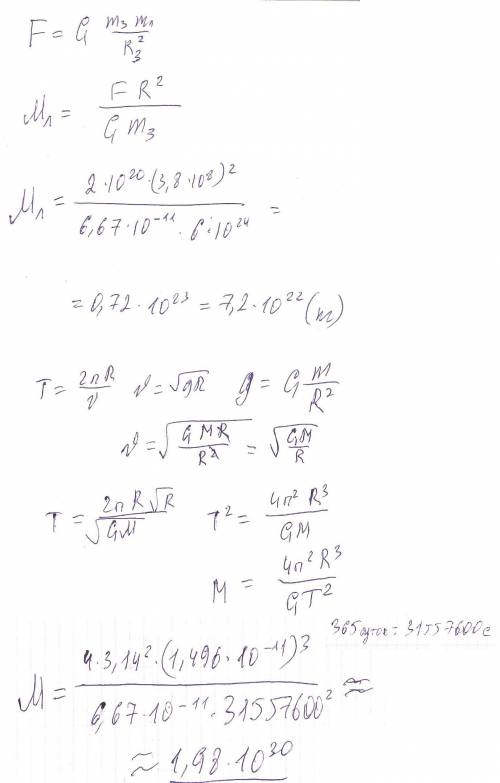 F = G m₃ m₁ / R₃²
M₁ = F R² / G m₃
M₁ = 2·10²⁰·(3,8·10⁸)² / 6,67·10⁻¹¹ · 6·10²⁴ =
= 0,72·10²³ = 7,2·10²² (кг)
T = 2πR / v v = √gR g = G m / R²
v = √(G M R / R²) = √(GM / R)
T = 2π R √R / √GM T² = 4π² R³ / GM
M = 4π² R³ / GT²
365 суток = 31557600 с
M = 4·3,14²·(1,496·10⁻¹¹)³ / 6,67·10⁻¹¹·31557600² ≈
≈ 1,98·10³⁰